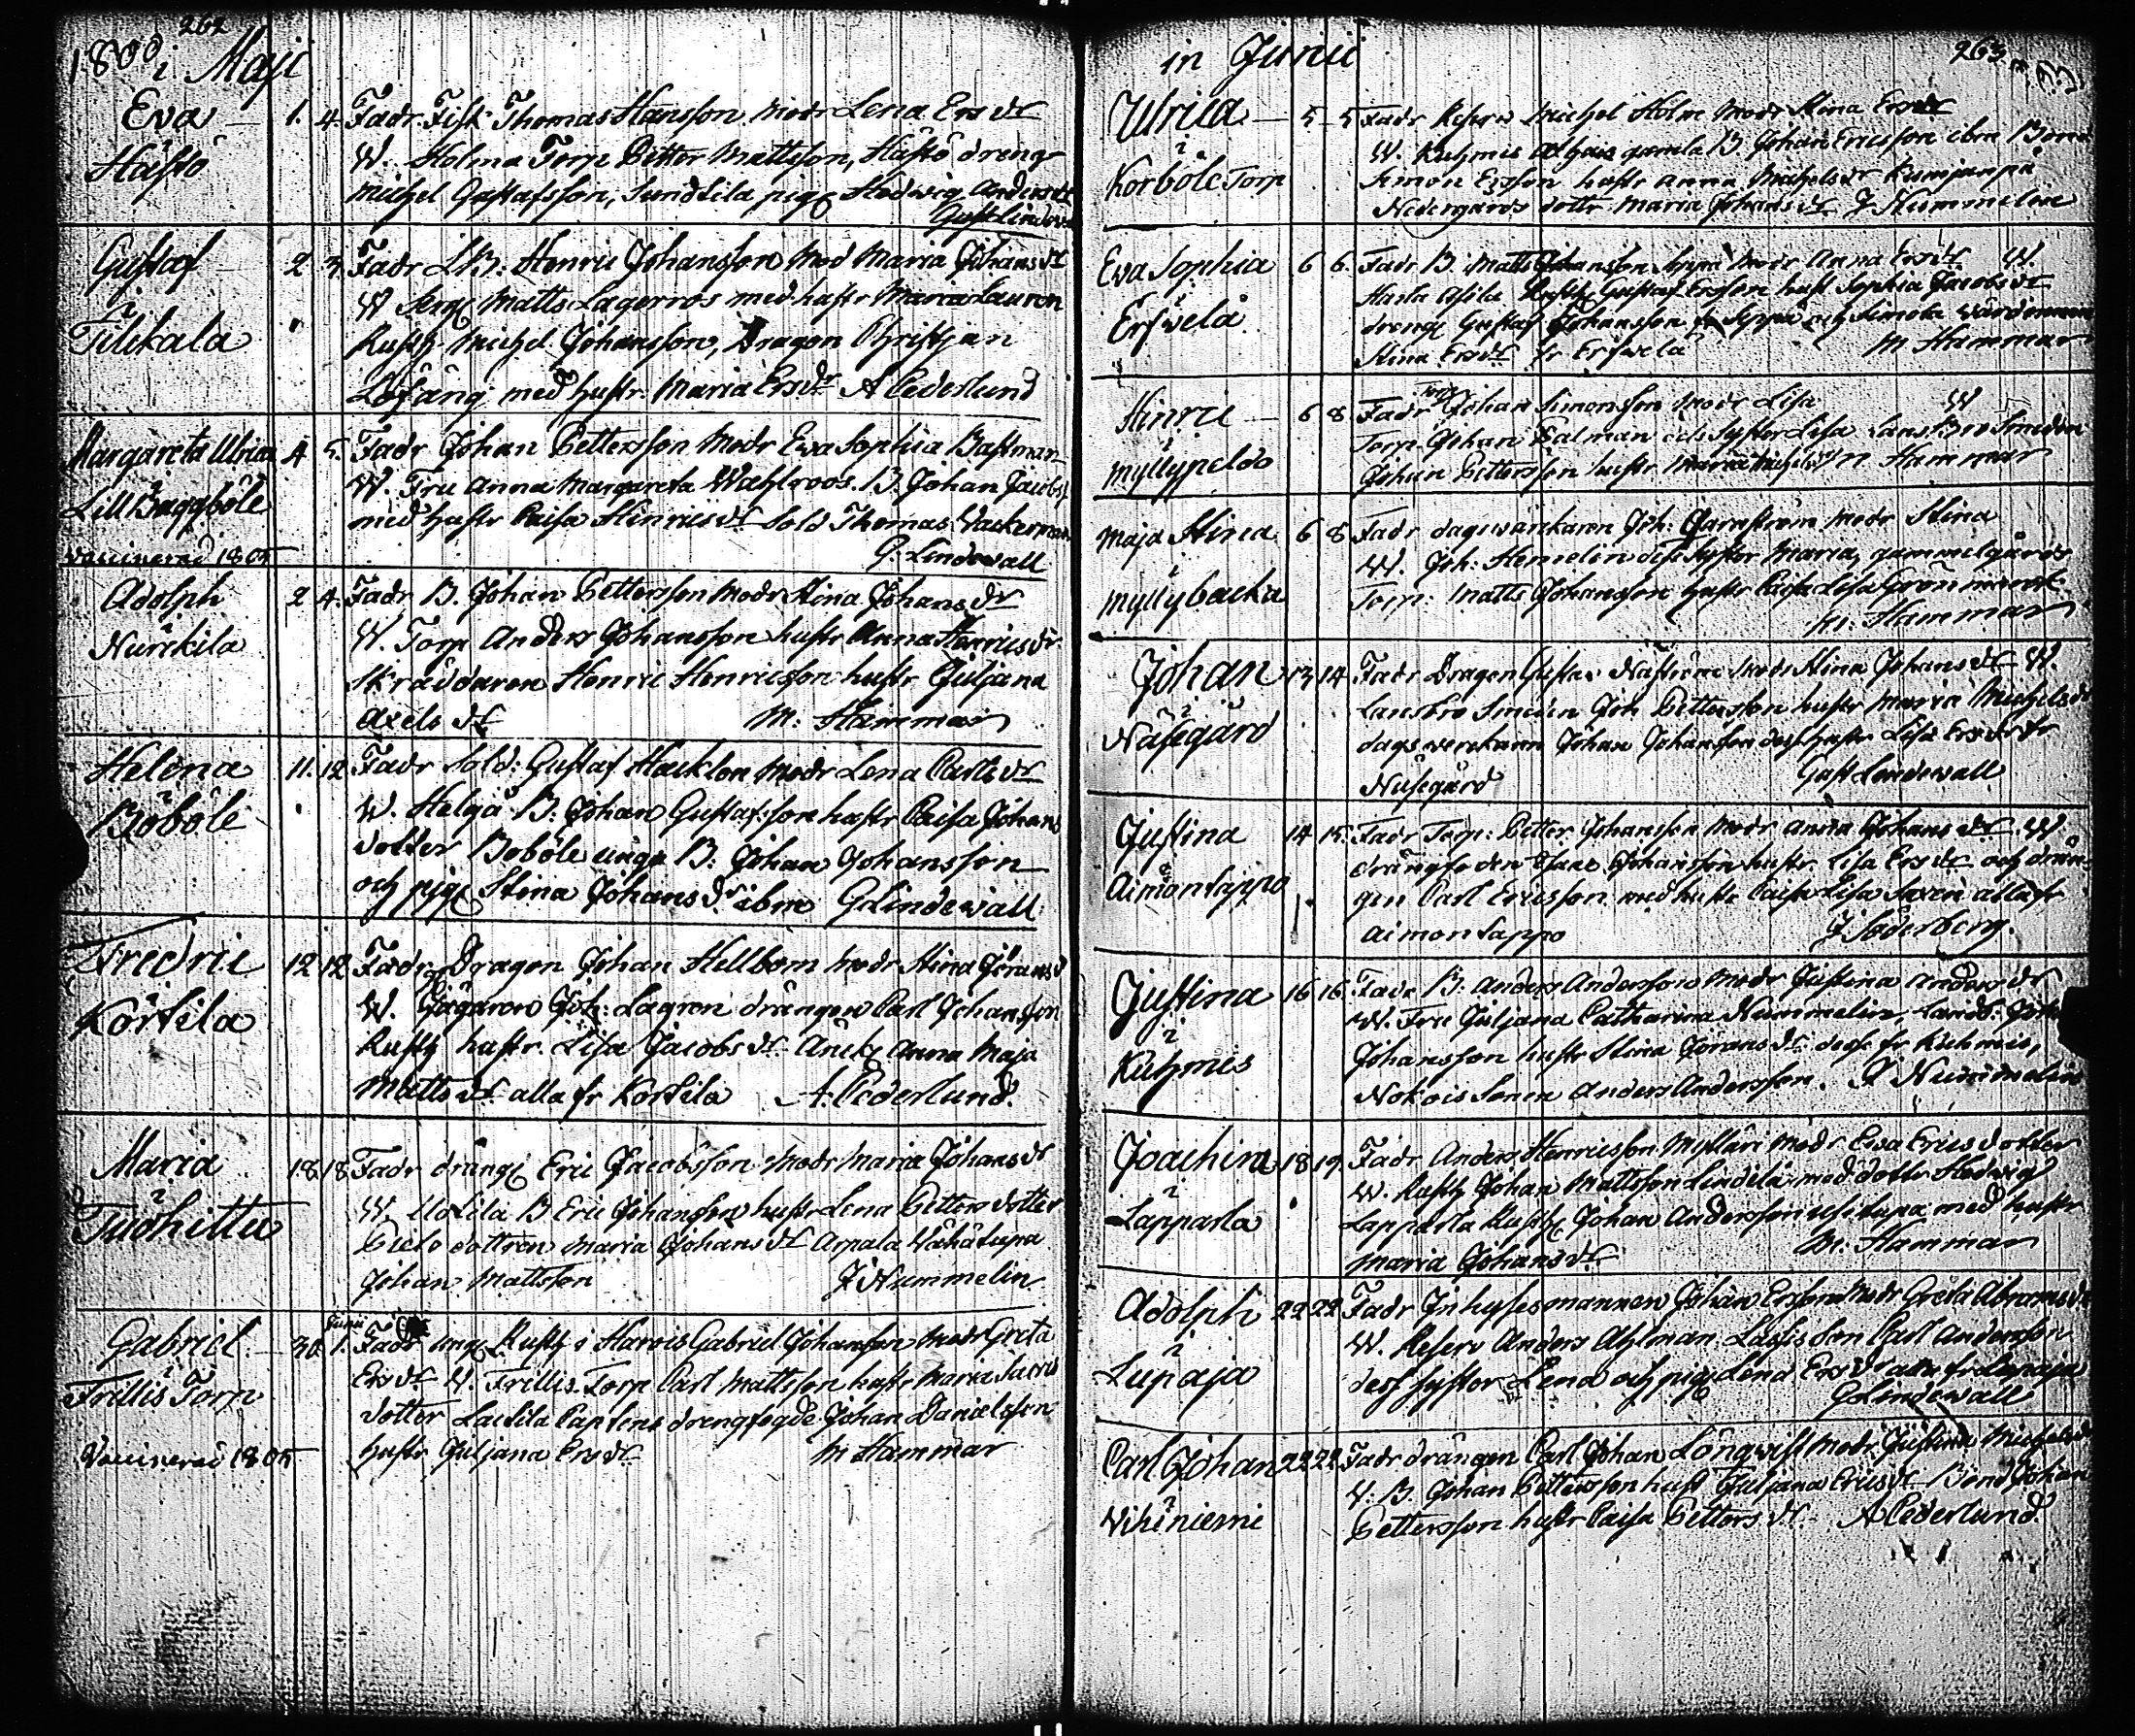 262
1800 i Maji
Eva
Hästö
1. 4. Fadr. Fisk Thomas Hansson Modr Lena Ersdr
W. Holma Torp Petter Mattsson, Hästö dreng
Michel Gustafsson, Sundsila pig Hedwig Andersdr
Gust Lindew
Gustaf
i
Tilikala
2 3. Fadr LB: Henric Johansson Mod Maria Johansdr
W Serg Matts Lagerros med hustr Maria Lauren
Rusth Michel Johansson, Dragon Christjan
Löfäng med hustr. Maria Ersdr A Cederlund
Margareta Ulrica
i
Lill Baggböle
Vaccinerad 1805
4 5. Fadr Johan Pettersson Modr Eva Sophia Bastman
W. Fru Anna Margareta Wahlroos. B. Johan Jacobs
med hustr Caisa Hinricsdr Sold Thomas Wackerman
G. Lindewall
Adolph
Nurckila
2 4. Fadr B. Johan Pettersson Modr Stina Johansdr
W. Torp Anders Johansson hustr Anna Henricsdr
Skräddaren Henric Henricsson hustr Juljana
Axelsdr M. Hammar
Helena
i
Böböle
11. 12 Fadr Sold: Gustaf Hacklen Modr Lena Carlsdr
W. Helgå B. Johan Gustafsson hustr Caisa Johans
dotter Boböle unga B: Johan Johansson
och pig Stina Johansdr ibm G Lindewall
Fredric
Körkila
12 12 Fadr Dragon Johan Hellbom Modr Stina Göransd
W. Jägaren Joh: Lagren drängen Carl Johansson
Rusth hustr. Lisa Jacobsdr Änck Anna Maja
Mattsdr alla fr Körkila A. Cederlund.
Maria
i
Tuohittu
18 18 Fadr dräng Eric Jacobsson Modr Maria Johansdr
W. Uolila B Eric Johansson hustr Lena Petters dotter
dottren Maria Johansdr Arpala Wähätupa
Johan Mattsson J Nummelin
Gabriel
Trillis Torp
Vaccinerad 1805
30 Junii 1. Fadr ung Rusth i Harvis Gabriel Johansson Modr Greta
Ersdr W. Trillis Torp Carl Mattsson hustr Maria
dotter Captens drengfogde Johan Danielsson
hustr Juljana Ersdr M Hammar
in Junii
263
Ulrica
i
Korböle Torp
5 5 Fadr Reserv Michel Holm Modr Stina Ersdr
W. Kuhmis gamla B Johan Ericsson ibm Bond
Simon Ersson hustr Anna Michelsdr Kumjanpä
Nedergårds dottr Maria Johansdr J Nummelin
Eva Sophia
i
Erswelä
6 6. Fadr B. Matts Johansson Modr Anna Ersdr W.
Rusth Gustaf Ersson hust Sophia Jacobsdr
dreng Gustaf Johansson
Stina Ersdr fr Erswelä M Hammar
Hinric
i
Myllypeldo
6 8. Fadr Torp Johan Simonsson Modr Lisa W
Torp. Johan Salman och Syster Lisa Smeden
Johan Pettersson hustr Maria Michelsdr M Hammar
Maja Stina
i
Myllybacka
6 8 Fadr dagswärkaren Joh: Modr Stina
W. Joh: Hemelin dess Syster Maria, gammelgårds
Torp: Matts Johansson hustr Caisa Lisa Grönmarck
M: Hammar
Johan
i
Näsegård
13 14 Fadr Dragon Gustav Modr Stina Johansdr W.
Smeden Joh Pettersson hustr Maria Michelsdr
dagswerckaren Johan Johansson dess hustr Lisa Ersdr fr
Näsegård Gust Lindewall
Justina
i
Aimonsappo
14 15. Fadr Torp: Petter Johansson Modr Anna Johansdr W
Johansson hustr Lisa Ersdr och drän
gen Carl Ericsson med hustr Caisa Lisa alla fr
Aimonsappo J Söderberg.
Justina
i
Kuhmis
16 16. Fadr B. Anders Andersson Modr Justina Andersdr
W. Fru Juljana Catharina Nummelin, Joh
Johansson hustr Stina Göransdr fr Kuhmis,
Nokois Sonen Anders Andersson. J Nummelin
Joachim
i
Lapparla
18 19. Fadr Anders Henricsson Mylläri Modr Eva Erics dotter
W. Rusth Johan Mattsson Lindilä med dottr Hedwig
Lapparla Rusth Johan Andersson med hustr
Maria Johansdr M: Hammar
Adolph
i
Lupaja
22 22 Fadr Inhysesmannen Johan Ersson Modr Greta Abramsdr
W. Reserv Anders Ahlman Son Carl Andersson
dess syster Lena och pig Lena Ersdr alla fr Lupaja
G Lindewall
Carl Johan
i
Wihiniemi
22 22. Fadr drängen Carl Johan Löngwist Modr Justina Michelsd
W. B. Johan Pettersson hust Juljana Ericsdr Bond Johan
Pettersson hustr Caisa Pettersdr A Cederlund.